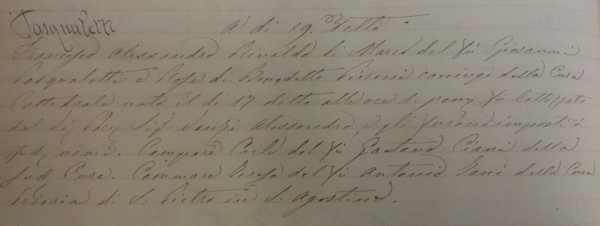 Pasqualetti
A' dì 19. Detto
Francesco Alessandro Rinaldo di Marco del fù Giovanni
Pasqualetti e Rosa di Benedetto coniugi della Cura
Cattedrale nato il dì 17 detto alle ore 2. pom. fù battezzato
dal Sig. Alessandro, e gli furono imposti i
sud. nomi. Compare Carlo del fù Gaetano Ciani della
sud Cura. Commare Teresa del fù Antonio della Cura
di S. Pietro in S. Agostino.